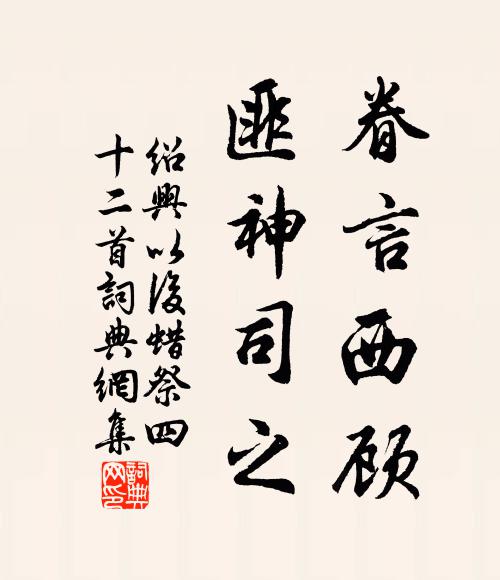 眷言西顾
匪神司之
绍興以後蜡祭四
十二首詞典網集
詞典網印